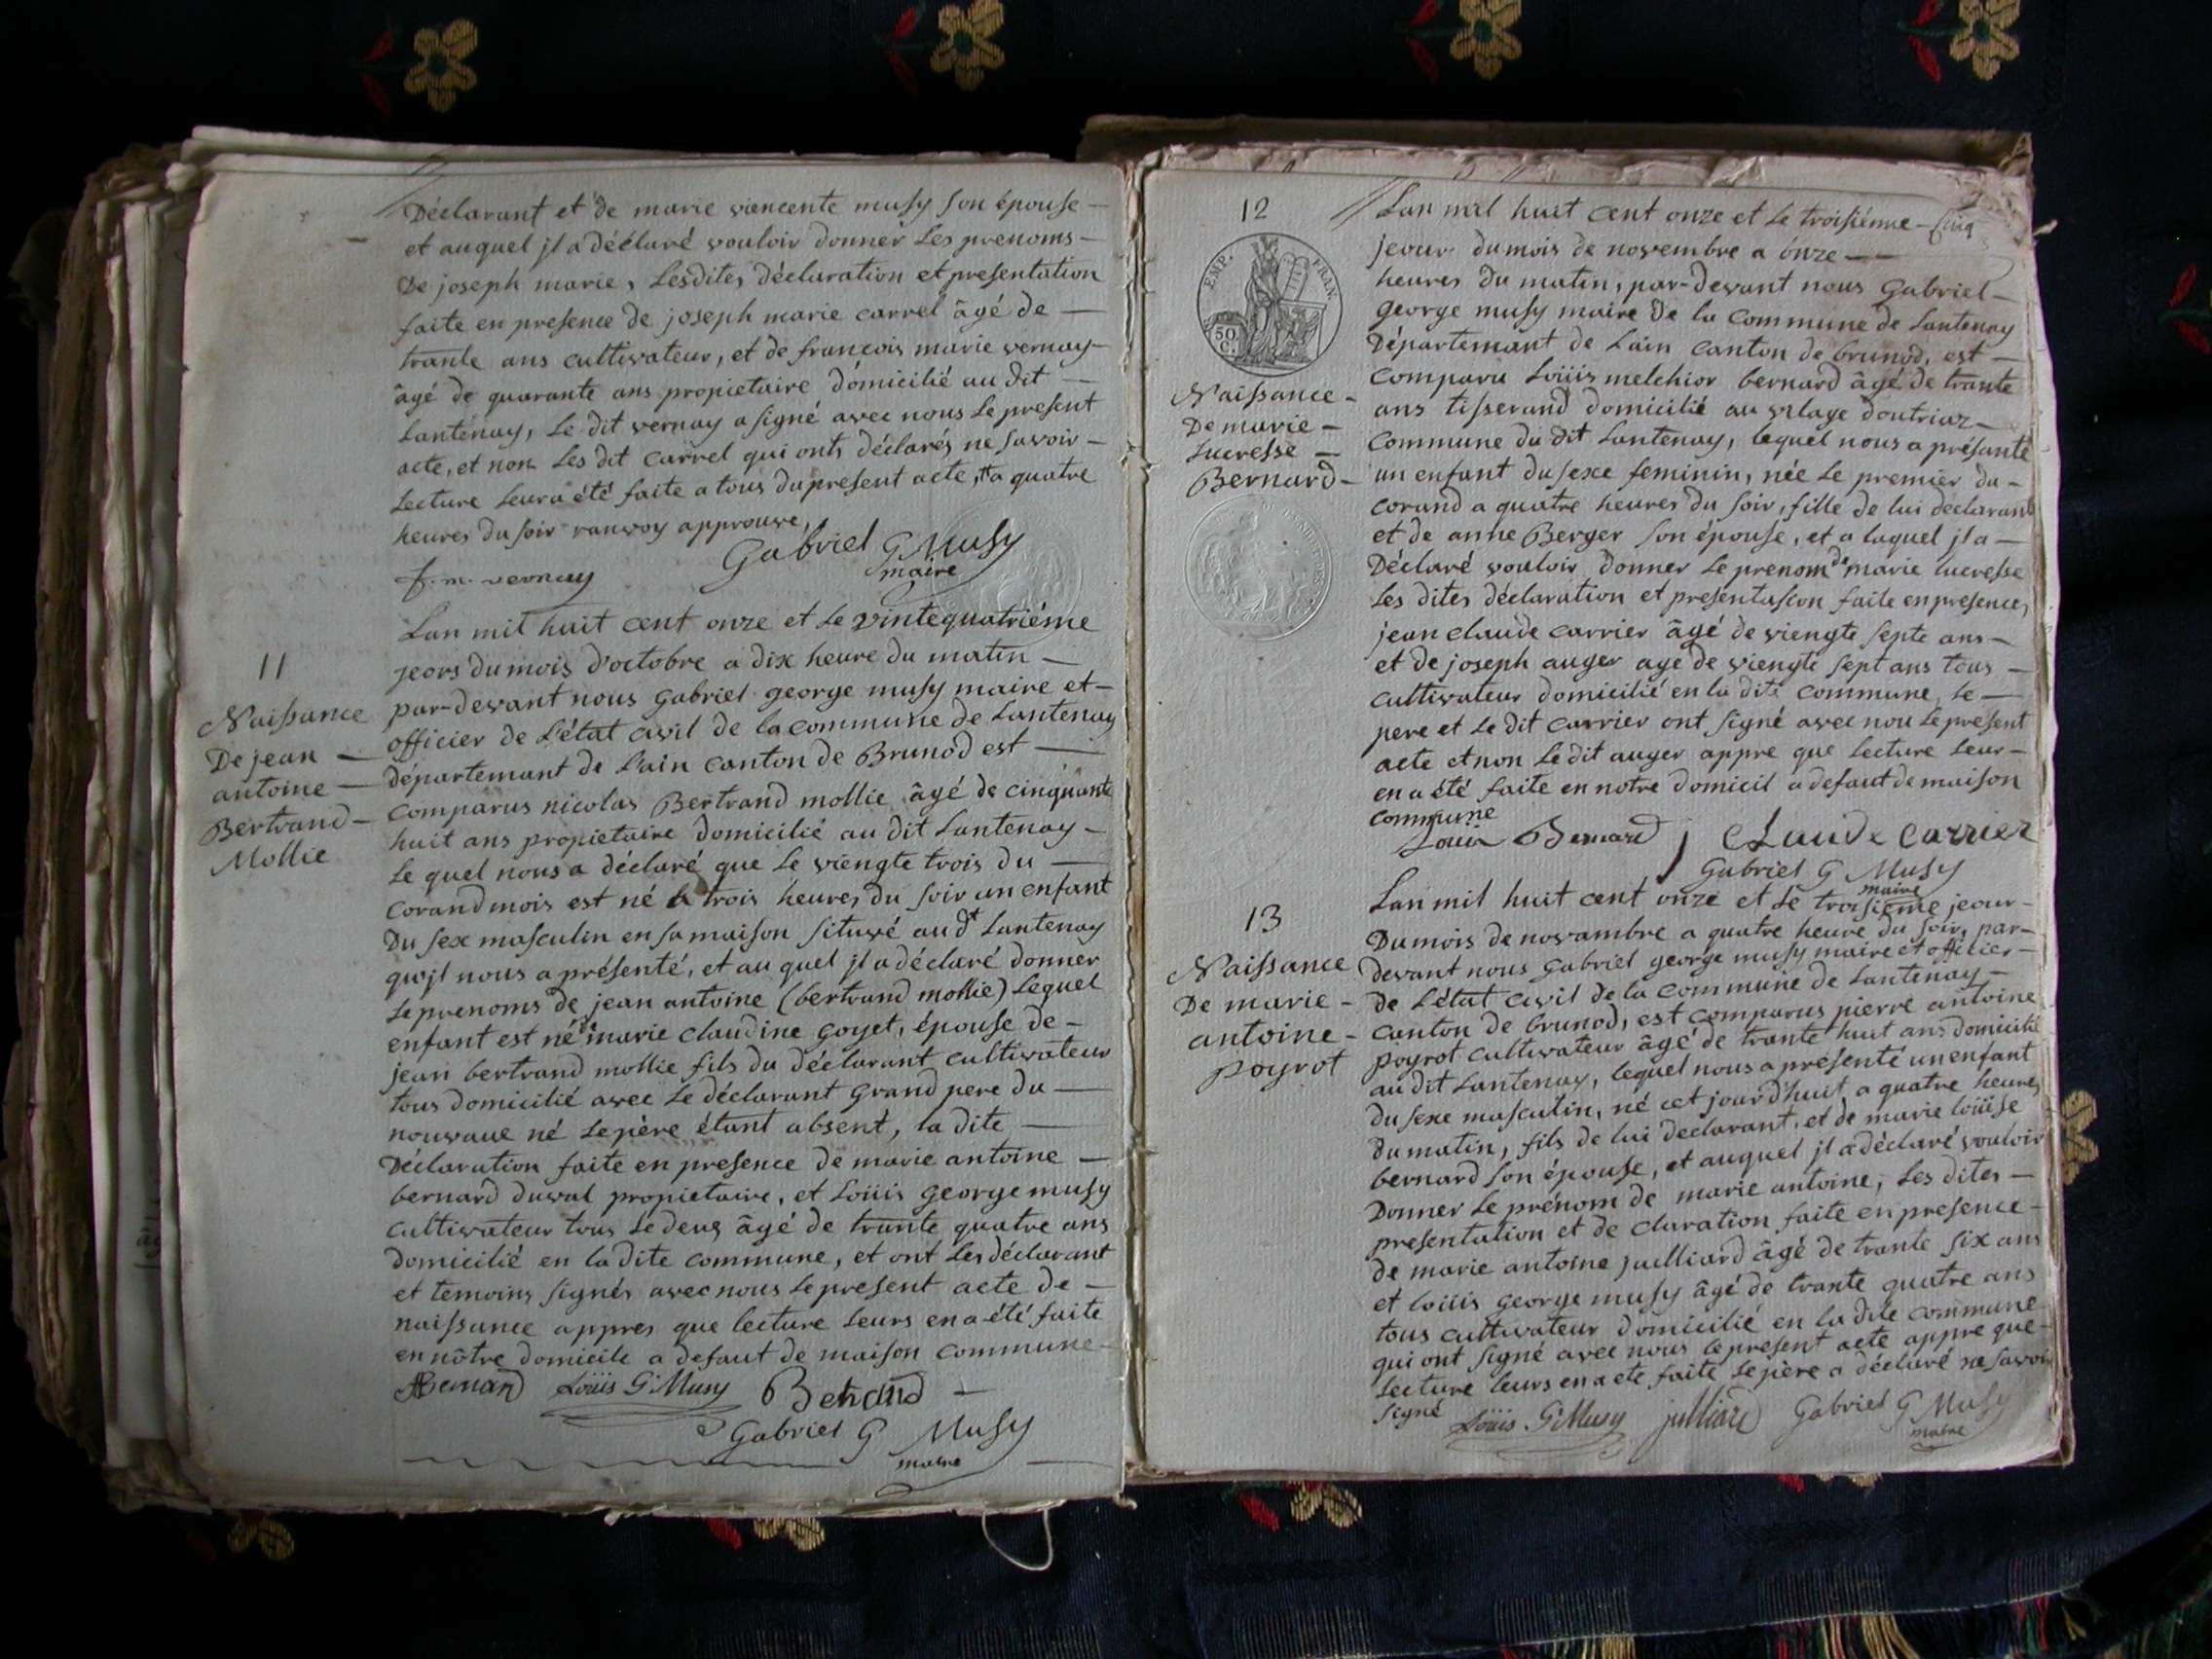 Déclarant et de marie viencente musy son épouse
et auquel jl a déclaré vouloir donner les prenoms
De joseph marie, Lesdites déclaration et presentation
faite en presence de joseph marie carrel âgé de
trante ans cultivateur, et de francois marie vernay
âgé de quarante ans propietaire domicilié au dit
Lantenay, Le dit vernay a signé avec nous Le present
acte, et non Les dit carrel qui onts déclarés ne savoir
Lecture leur a été faite a tous du present acte, a quatre
heures du soir ranvoy approuvé,
f. m. vernay
Gabriel G Musy
maire
11
Naissance
De jean
antoine
Bertrand
Mollie
Lan mil huit cent onze et Le vintequatriéme
jeors du mois d'octobre a dix heure du matin
par-devant nous Gabriel george musy maire et
officier de L'état civil de la commune de Lantenay
département de L'ain canton de Brunod est
comparus nicolas Bertrand mollie âgé de cinquante
huit ans propietaire domicilié au dit Lantenay
Le quel nous a déclaré que Le viengte trois du
corand mois est né a trois heures du soir un enfant
Du sex masculin en sa maison situvé au dt Lantenay
qu'jl nous a présenté, et au quel jl a déclaré donner
Le prenoms de jean antoine (bertrand mollie) Lequel
enfant est né de marie claudine goyet, épouse de
jean bertrand mollie fils du déclarant cultivateur
tous domicilié avec Le déclarant grand pere du
nouvaue né Le père étant absent, la dite
Déclaration faite en presence de marie antoine
bernard duval propietaire, et Loüis george musy
cultivateur tous Le deus âgé de trante quatre ans
domicilié en la dite commune, et ont Les déclarant
et temoins signés avec nous Le present acte de
naissance appres que lecture Leurs en a été faite
en nôtre domicile a defaut de maison commune
Bernard Loüis G Musy Betrand
Gabriel G Musy
maire
12
EMP. FRAN.
50
C.
Naissance
De marie
Lucresse
Bernard
Lan mil huit cent onze et Le troisiénme cinq
jeour du mois de novembre a onze
heures du matin, par-devant nous Gabriel
george musy maire de la commune de Lantenay
Département de Lain canton de brunod, est
comparu Loüis melchior bernard âgé de trante
ans tisserand domicilié au vilage doutriaz
commune du dit Lantenay, lequel nous a présanté
un enfant du sexe feminin, née Le premier du
corand a quatre heures du soir, fille de lui déclarant
et de anne Berger son épouse, et a laquel jl a
Déclaré vouloir donner Le prenom de marie lucresse
Les dites déclaration et presentascion faite en presence,
jean claude carrier âgé de viengte septe ans
et de joseph auger age de viengte sept ans tous
cultivateur domicilié en la dite commune, Le
pere et Le dit carrier ont signé avec nou Le present
acte et non Le dit auger appre que lecture leur
en a été faite en notre domicil a defaut de maison
commune
Louis Bernard j Claude carrier
Gabriel G Musy
maire
13
Naissance
De marie
antoine
poyrot
Lan mil huit cent onze et Le troisième jeour
Du mois de novambre a quatre heure du soir, par-
devant nous Gabriel george musy maire et officier
de L'état civil de la commune de Lantenay
canton de brunod, est comparus pierre antoine
poyrot cultivateur âgé de trante huit ans domicilié
au dit Lantenay, lequel nous a présenté un enfant
du sexe masculin, né cet jourd'huit a quatre heures
du matin, fils de lui declarant, et de marie loüise
bernard son épouse, et auquel jl a déclaré vouloir
Donner Le prénom de marie antoine, Les dites
presentation et de claration faite en presence
de marie antoine juilliard âgé de trante six ans
et loüis george musy âgé de trante quatre ans
tous cultivateur domicilié en la dite commune
qui ont signé avec nous le present acte appre que
Lecture leurs en a ete faite Le père a déclaré ne savoir
signé
Loüis G Musy julliard Gabriel G Musy
maire